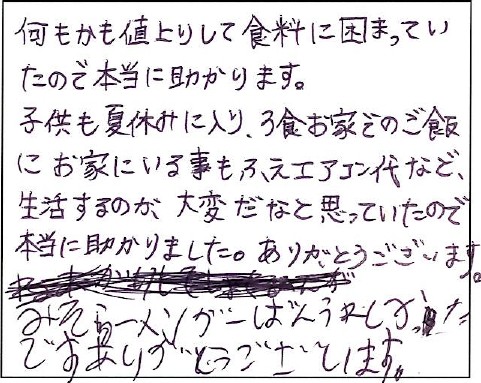 何もかも値上りして食料に困まってい
たので本当に助かります。
子供も夏休みに入り、3食お家でのご飯
に お家にいる事もふえエアコン代など、
生活するのが、大変だなと思っていたので
本当に助かりました。ありがとうございます。
みそらーメンがーばんうれしかった
ですありがとうございます。